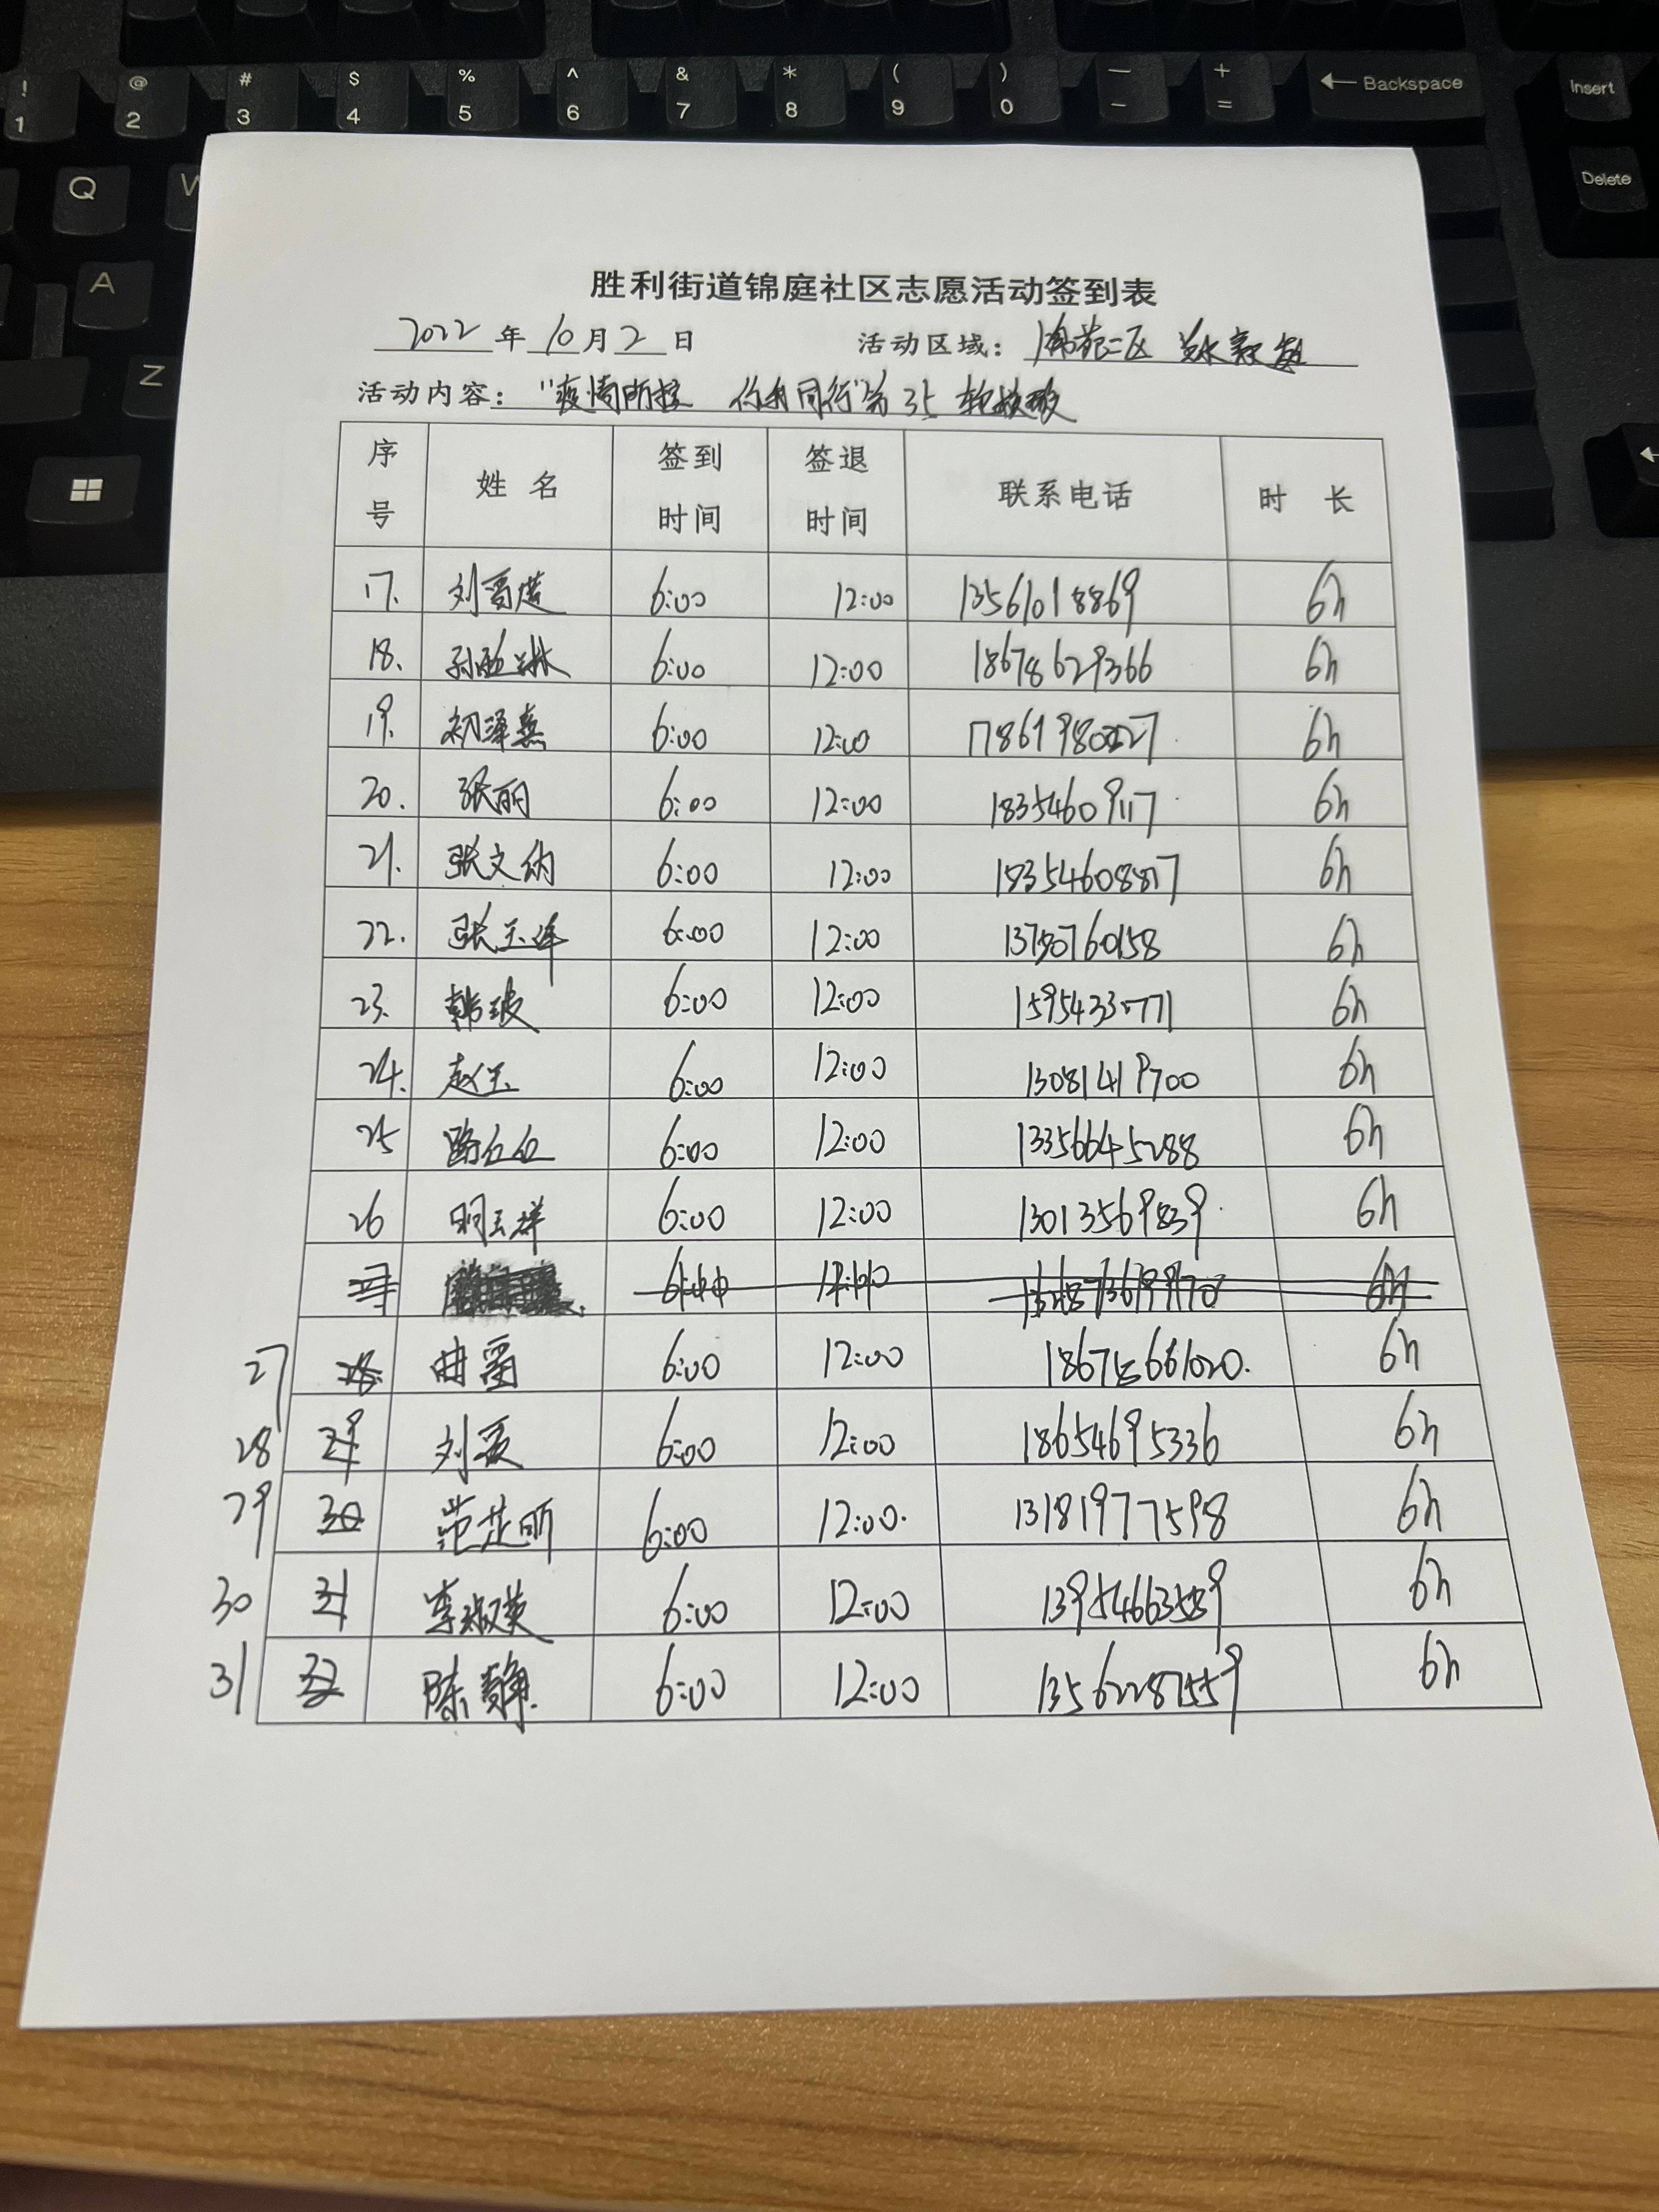 ! @ # $ % ^ & * ( ) — +
1 2 3 4 5 6 7 8 9 0 - = ← Backspace Insert
Q W Delete
A
Z
胜利街道锦庭社区志愿活动签到表
2022 年 10 月 2 日 活动区域: 锦苑二区
活动内容: "疫情防控 你我同行"第 35 轮核酸
序号 姓名 签到时间 签退时间 联系电话 时长
17. 6:00 12:00 13561018869 6h
18. 6:00 12:00 18678629366 6h
19. 初泽熹 6:00 12:00 6h
20. 张丽 6:00 12:00 18354609117 6h
21. 张文纳 6:00 12:00 6h
22. 6:00 12:00 6h
23. 韩波 6:00 12:00 15954330771 6h
24. 赵玉 6:00 12:00 13081419700 6h
25 路 6:00 12:00 13356645288 6h
26 明玉祥 6:00 12:00 13013569839 6h
27 6:00 12:00 6h
28 29 刘 6:00 12:00 18654695336 6h
29 30 范芷昕 6:00 12:00. 13181977598 6h
30 31 李淑英 6:00 12:00 13954663589 6h
31 32 陈静 6:00 12:00 13562287559 6h